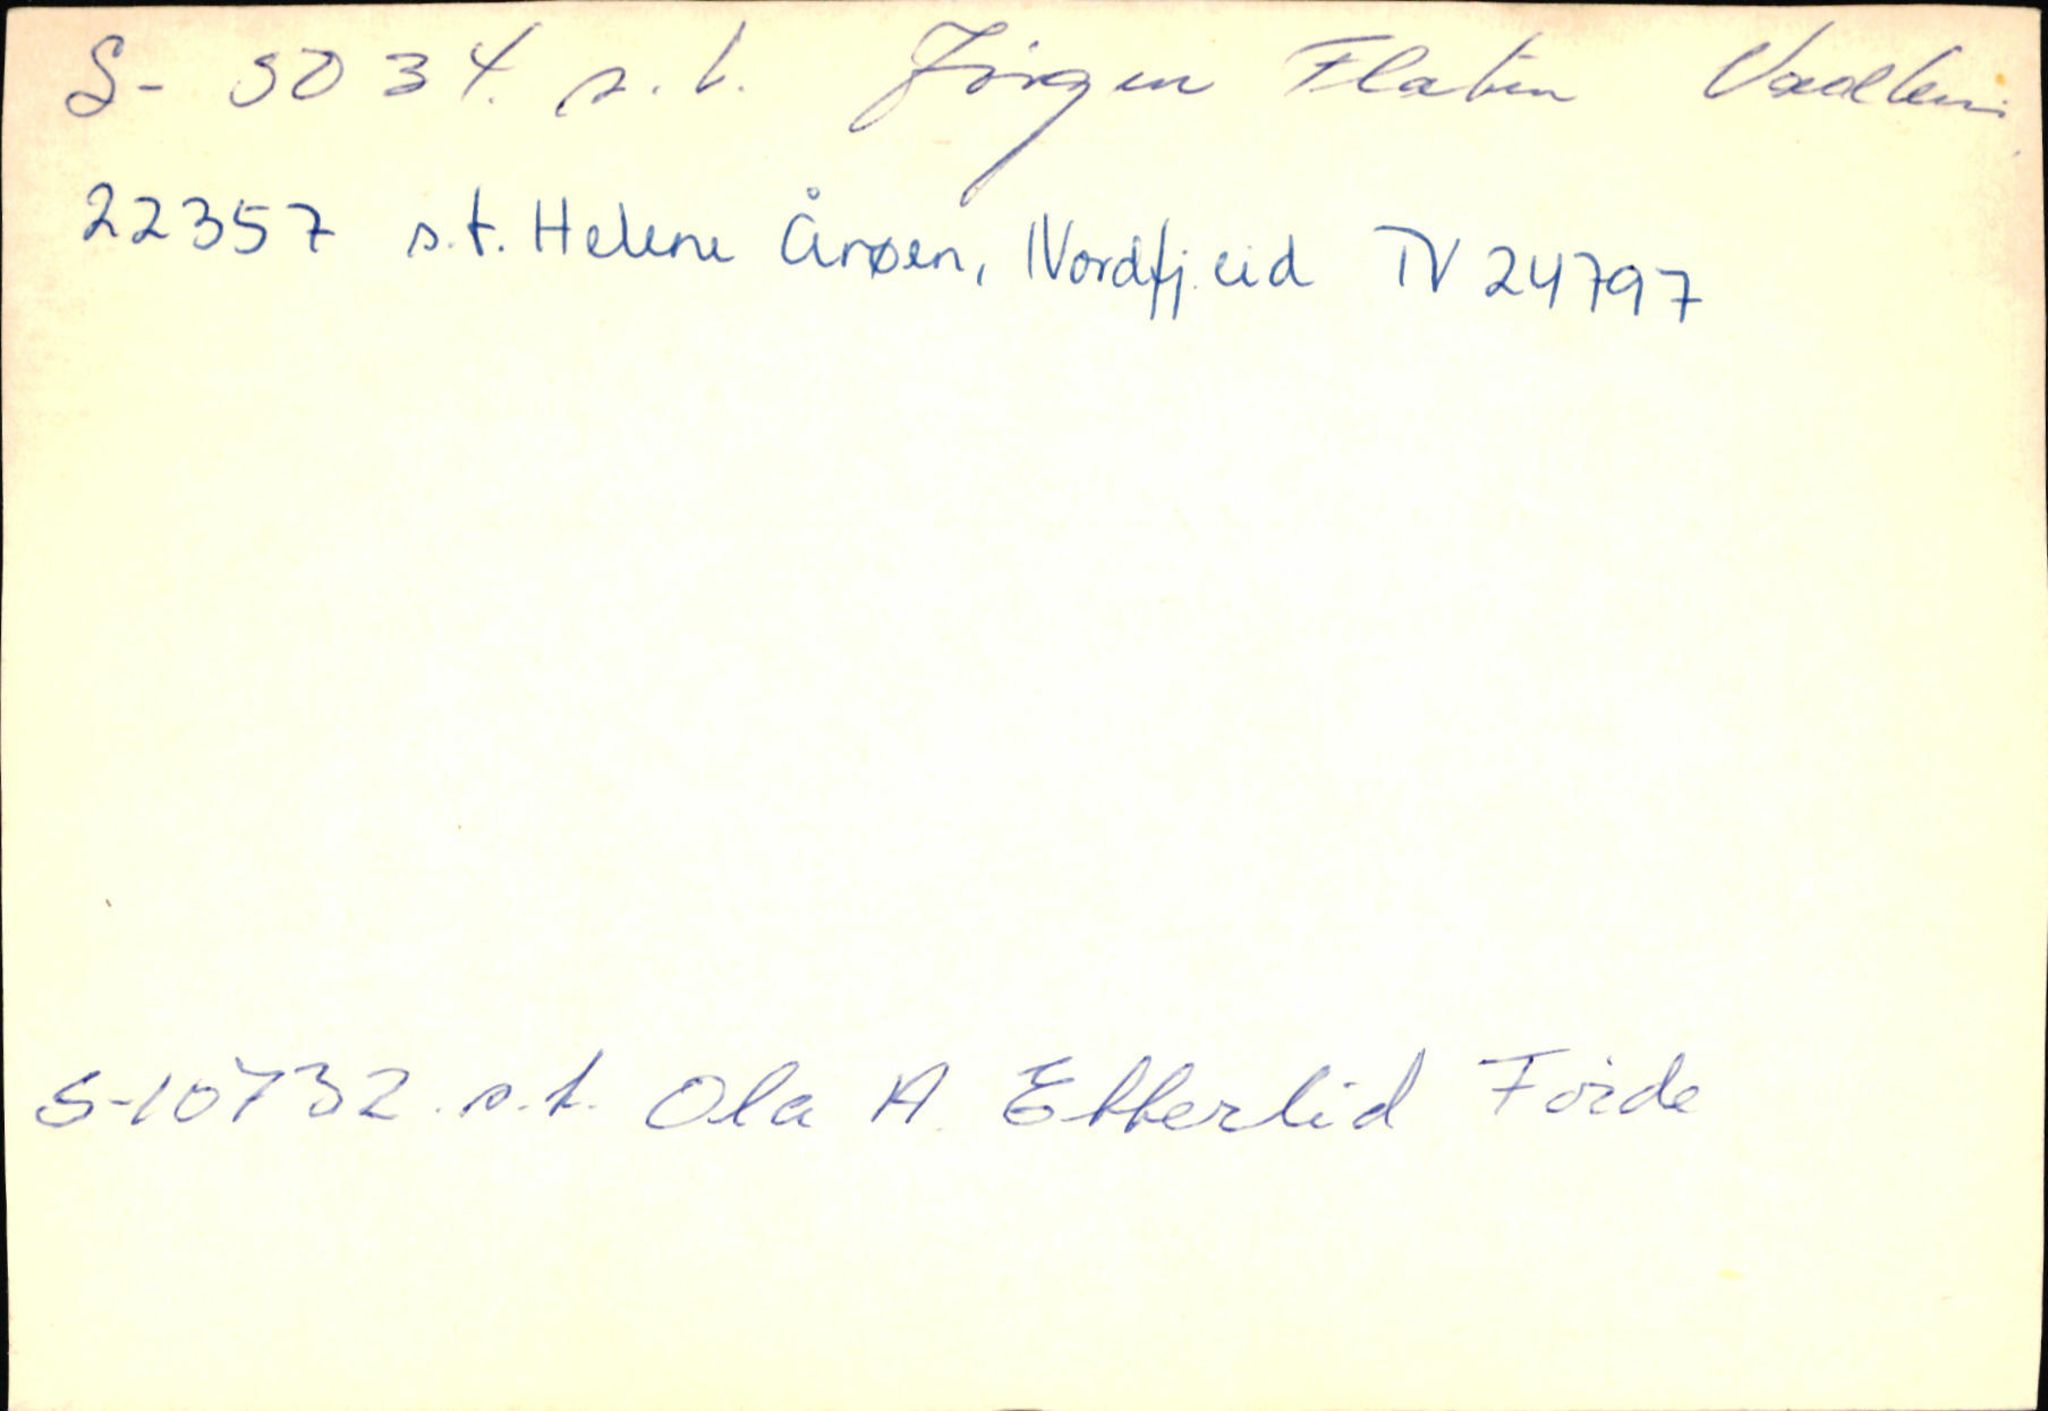 S- 5034. s.t. Jörgen Flaten Vadheim
22357 s.t. Helene Årøen, Nordfj.eid TV 24797
S-10732. s.t. Ola A. Etterlid Förde